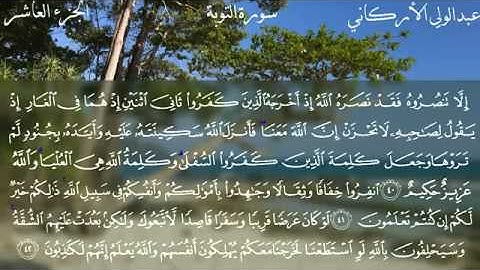 عبدالولي الأركاني سورة التوبة الجزء العاشر
إِلَّا تَنصُرُوهُ فَقَدْ نَصَرَهُ اللَّهُ إِذْ أَخْرَجَهُ الَّذِينَ كَفَرُوا ثَانِيَ اثْنَيْنِ إِذْ هُمَا فِي الْغَارِ إِذْ
يَقُولُ لِصَاحِبِهِ لَا تَحْزَنْ إِنَّ اللَّهَ مَعَنَا فَأَنزَلَ اللَّهُ سَكِينَتَهُ عَلَيْهِ وَأَيَّدَهُ بِجُنُودٍ لَّمْ
تَرَوْهَا وَجَعَلَ كَلِمَةَ الَّذِينَ كَفَرُوا السُّفْلَىٰ وَكَلِمَةُ اللَّهِ هِيَ الْعُلْيَا وَاللَّهُ
عَزِيزٌ حَكِيمٌ ٤٠ انفِرُوا خِفَافًا وَثِقَالًا وَجَاهِدُوا بِأَمْوَالِكُمْ وَأَنفُسِكُمْ فِي سَبِيلِ اللَّهِ ذَٰلِكُمْ خَيْرٌ
لَّكُمْ إِن كُنتُمْ تَعْلَمُونَ ٤١ لَوْ كَانَ عَرَضًا قَرِيبًا وَسَفَرًا قَاصِدًا لَّاتَّبَعُوكَ وَلَٰكِن بَعُدَتْ عَلَيْهِمُ الشُّقَّةُ
وَسَيَحْلِفُونَ بِاللَّهِ لَوِ اسْتَطَعْنَا لَخَرَجْنَا مَعَكُمْ يُهْلِكُونَ أَنفُسَهُمْ وَاللَّهُ يَعْلَمُ إِنَّهُمْ لَكَاذِبُونَ ٤٢